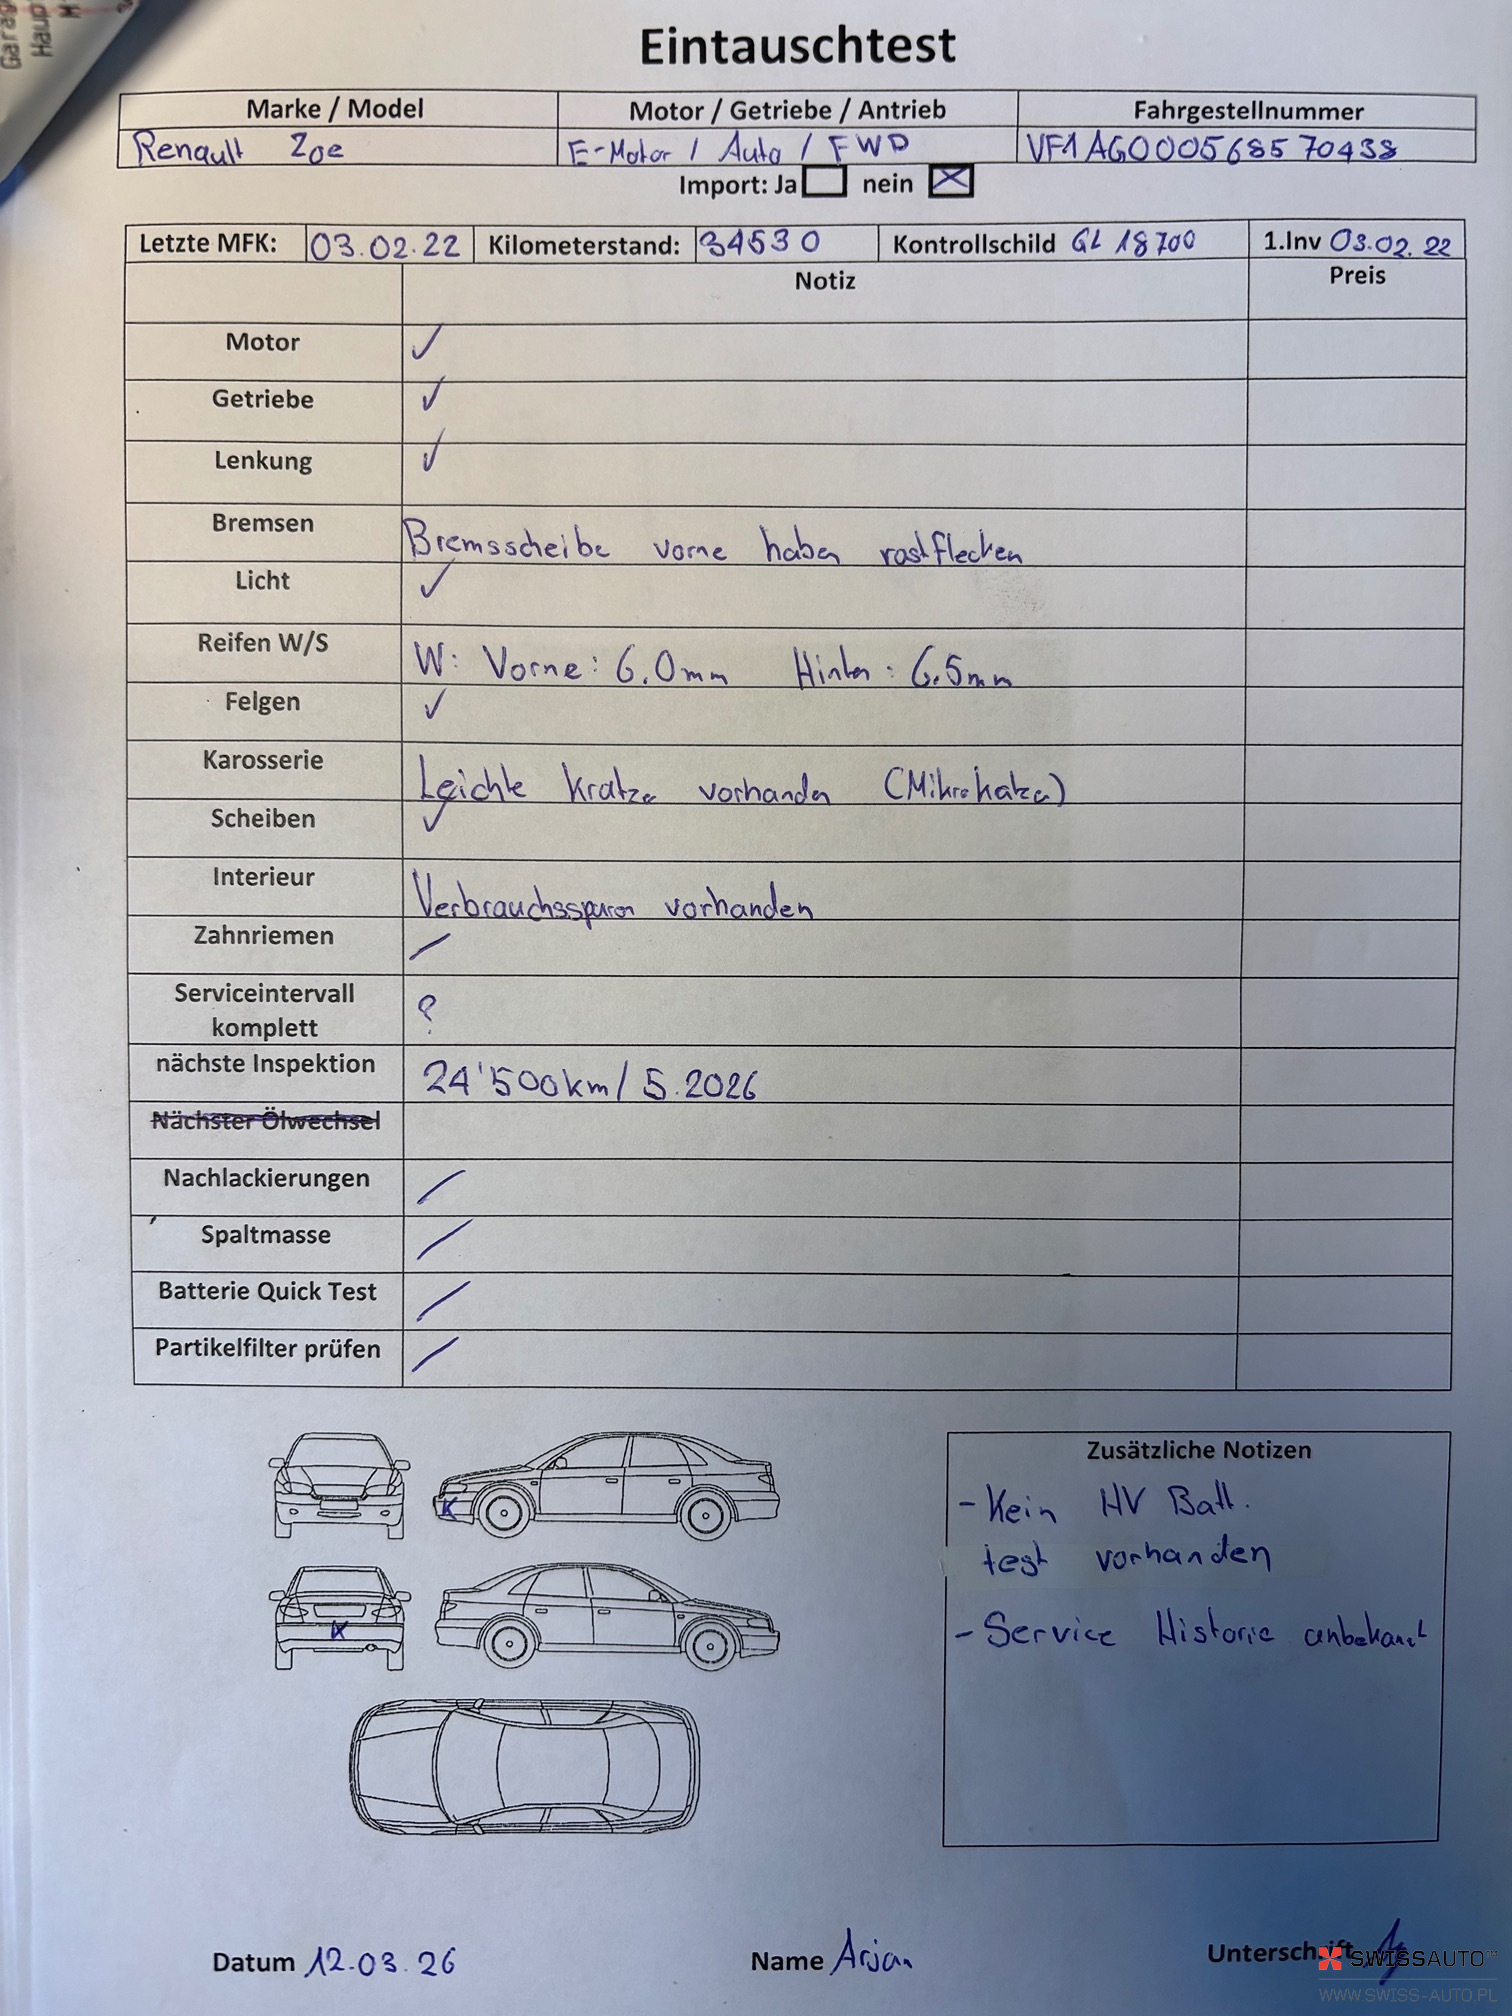 Garag
Haup
Eintauschtest
Marke / Model Motor / Getriebe / Antrieb Fahrgestellnummer
Renault Zoe E-Motor / Auto / FWD VF1AG000568570438
Import: Ja nein
Letzte MFK: 03.02.22 Kilometerstand: 34530 Kontrollschild GL 18700 1.Inv 03.02.22
Notiz Preis
Motor ✓
Getriebe ✓
Lenkung ✓
Bremsen Bremsscheibe vorne haben rostflecken
Licht ✓
Reifen W/S W: Vorne: 6.0mm Hinten: 6.5mm
Felgen ✓
Karosserie Leichte Kratzer vorhanden (Mikrokratzer)
Scheiben ✓
Interieur Verbrauchsspuren vorhanden
Zahnriemen /
Serviceintervall
komplett ?
nächste Inspektion 24'500km / 5.2026
Nächster Ölwechsel
Nachlackierungen /
Spaltmasse /
Batterie Quick Test /
Partikelfilter prüfen /
Zusätzliche Notizen
- Kein HV Batt.
test vorhanden
- Service Historie unbekannt
K
K
Datum 12.03.26 Name Arjan Unterschrift
SWISSAUTO
WWW.SWISS-AUTO.PL